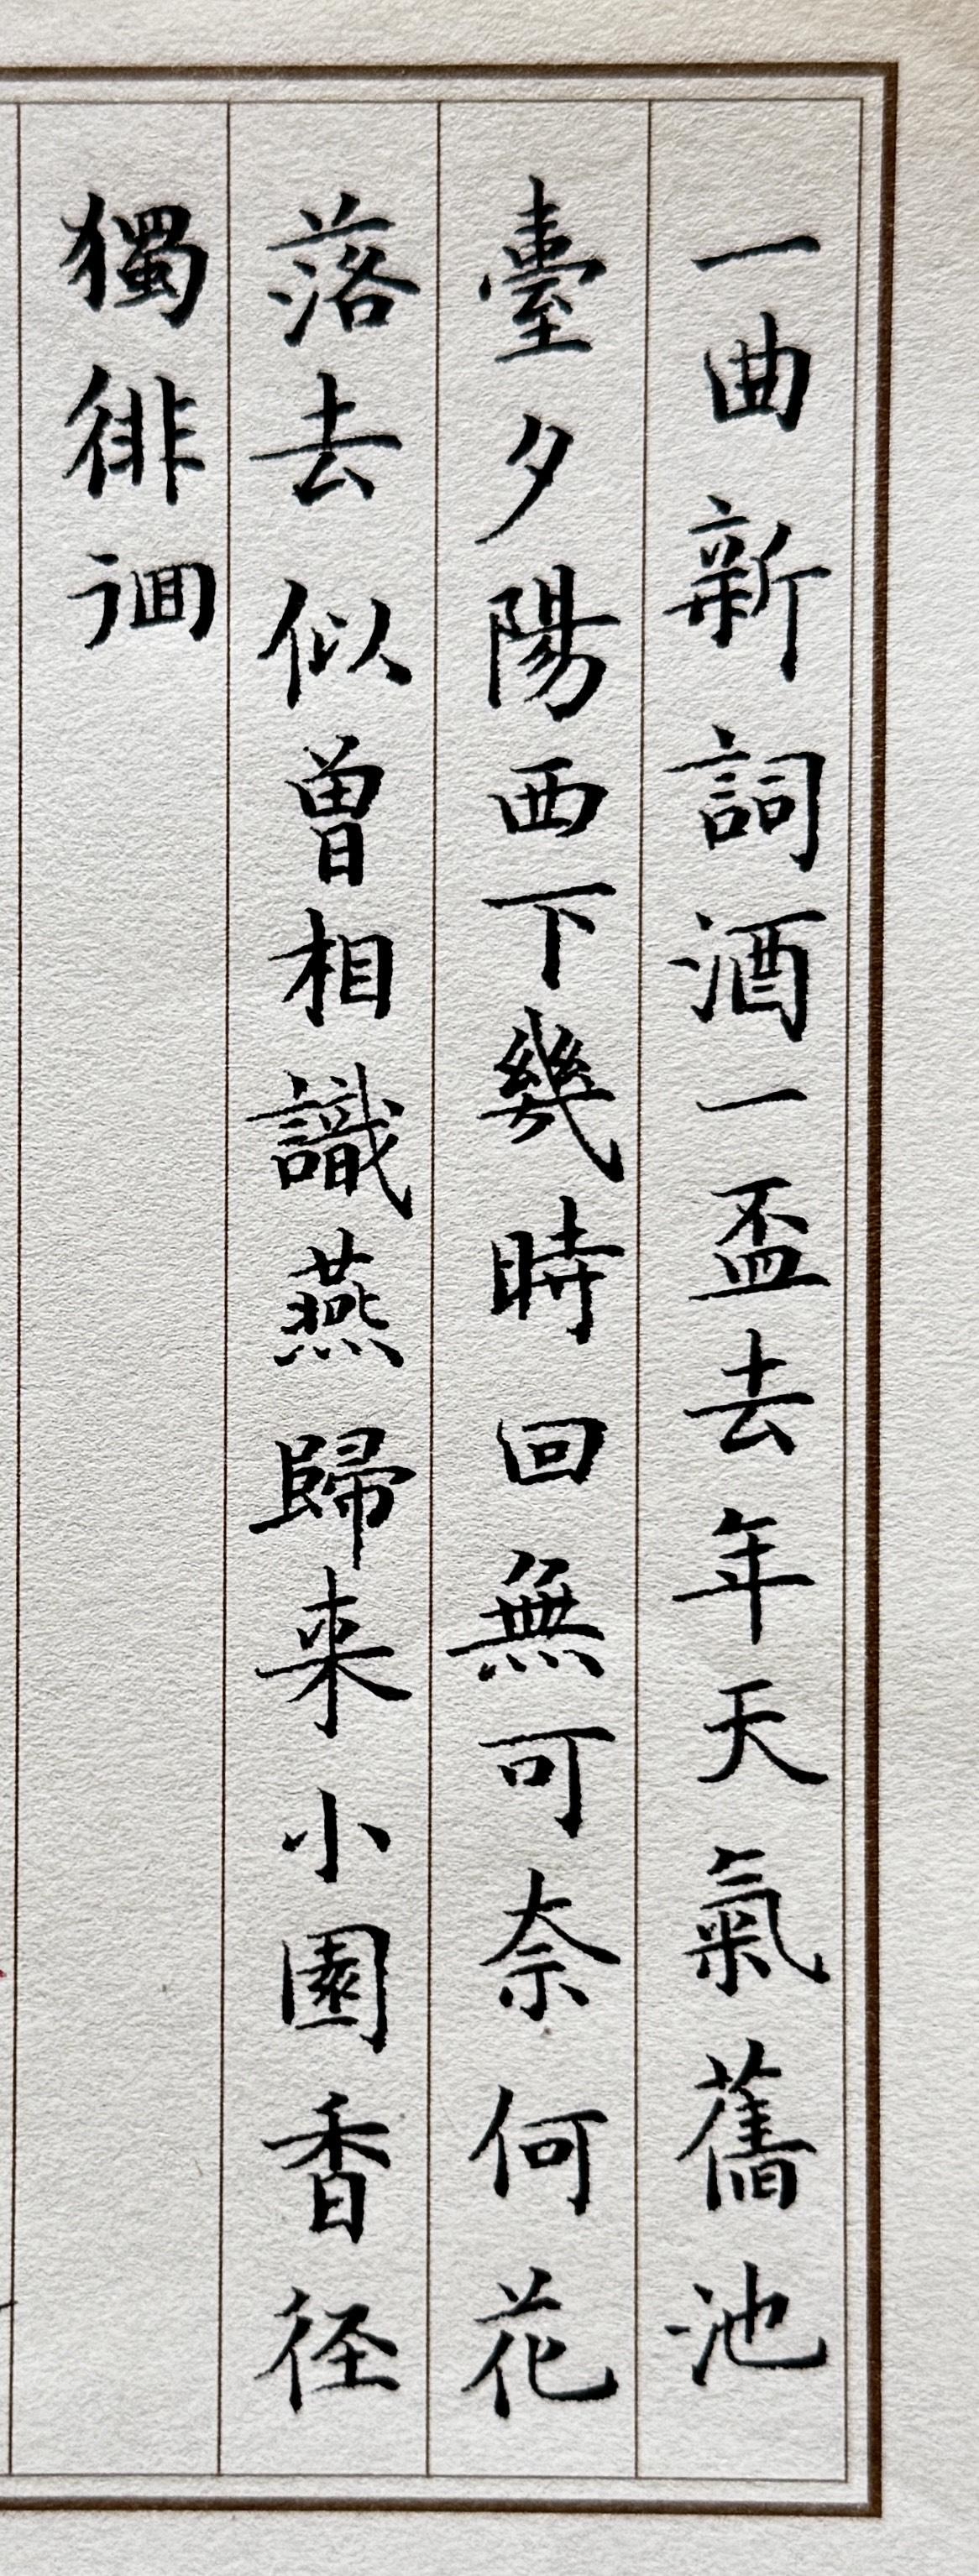 一曲新詞酒一盃去年天氣舊池
臺夕陽西下幾時回無可奈何花
落去似曾相識燕歸来小園香径
獨徘徊